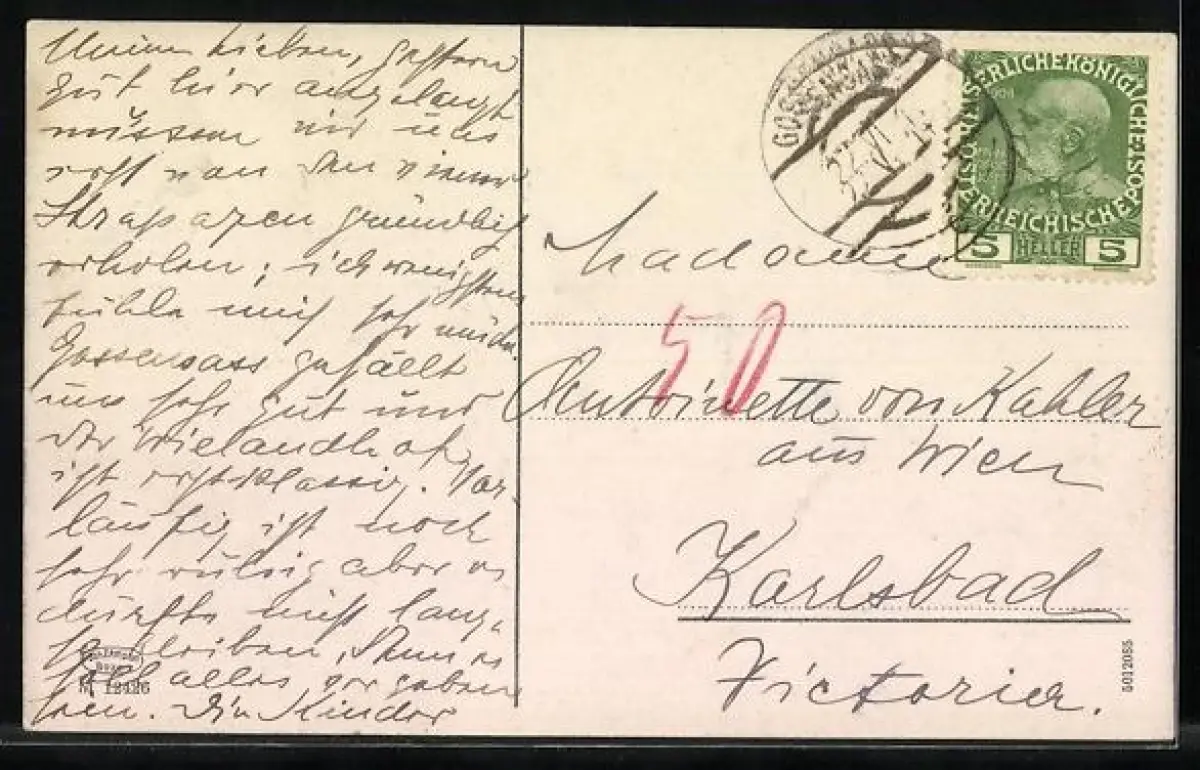 Meine Lieben, gestern
gut hier angelangt
müssen wir uns
erst von den
Strapazen gründlich
erholen; ich wenigstens
fühle mich sehr müde.
Gossensass gefällt
uns sehr gut und
der Wielandhof
ist erstklassig. Vor-
läufig ist noch
sehr ruhig aber es
dürfte nicht lang
so bleiben, denn es
soll alles vergeben
sein. Die Kinder
M 12426
GOSSENSASS
KAISERLICHE KÖNIGLICHE ÖSTERREICHISCHE POST
5 HELLER 5
Madame
50
Antoinette von Kahler
aus Wien
Karlsbad
Victoria.
5012055